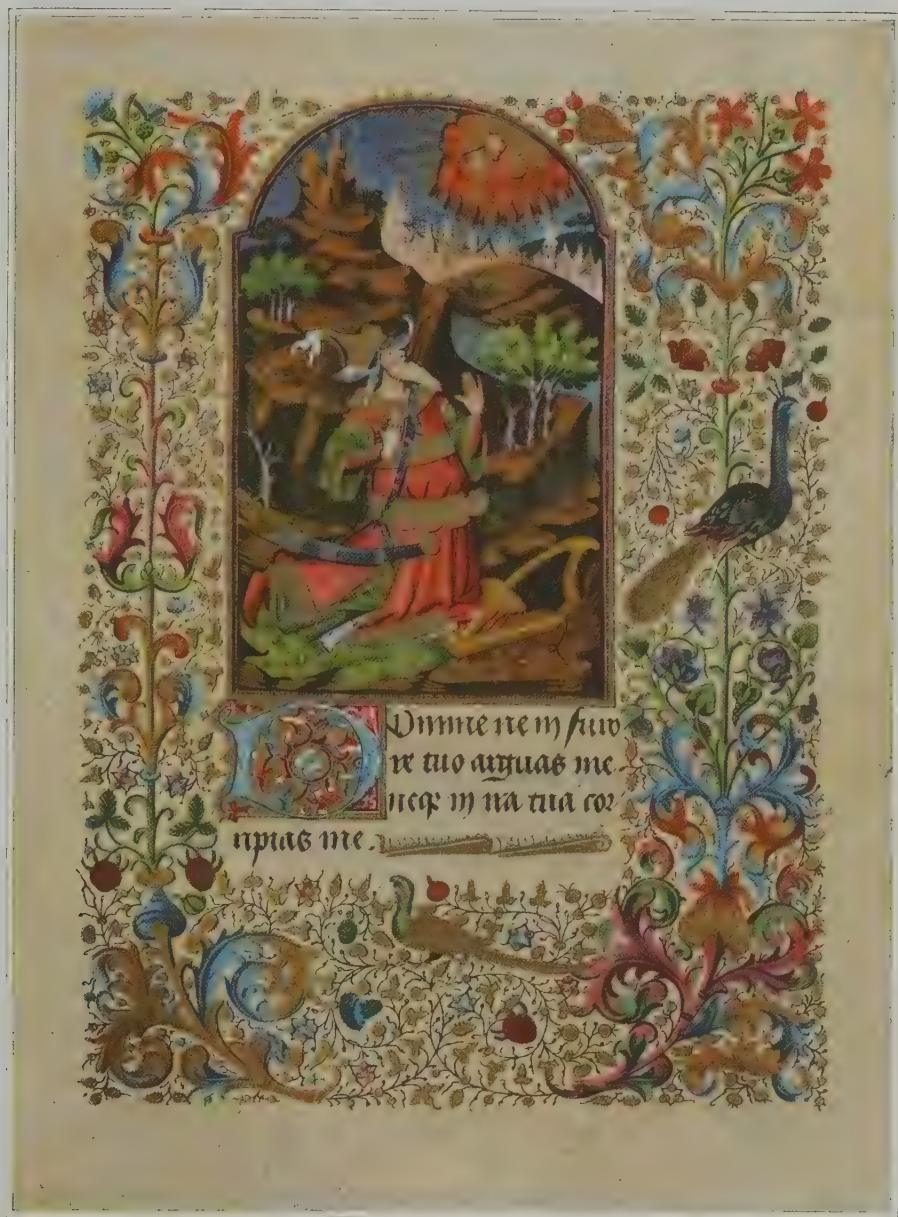 Domine ne in furo
re tuo arguas me
neqꝫ in ira tua cor
ripias me.